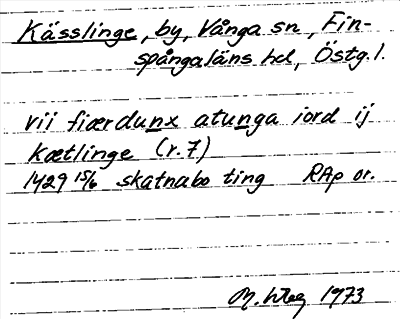 Kässlinge, by, Vånga sn, Fin-
spångaläns hd, Östg.l.
vii fiærdunx atunga iord ij
kætlinge (r.7)
1429 15/6 skatnabo ting RAp or.
M. 1973